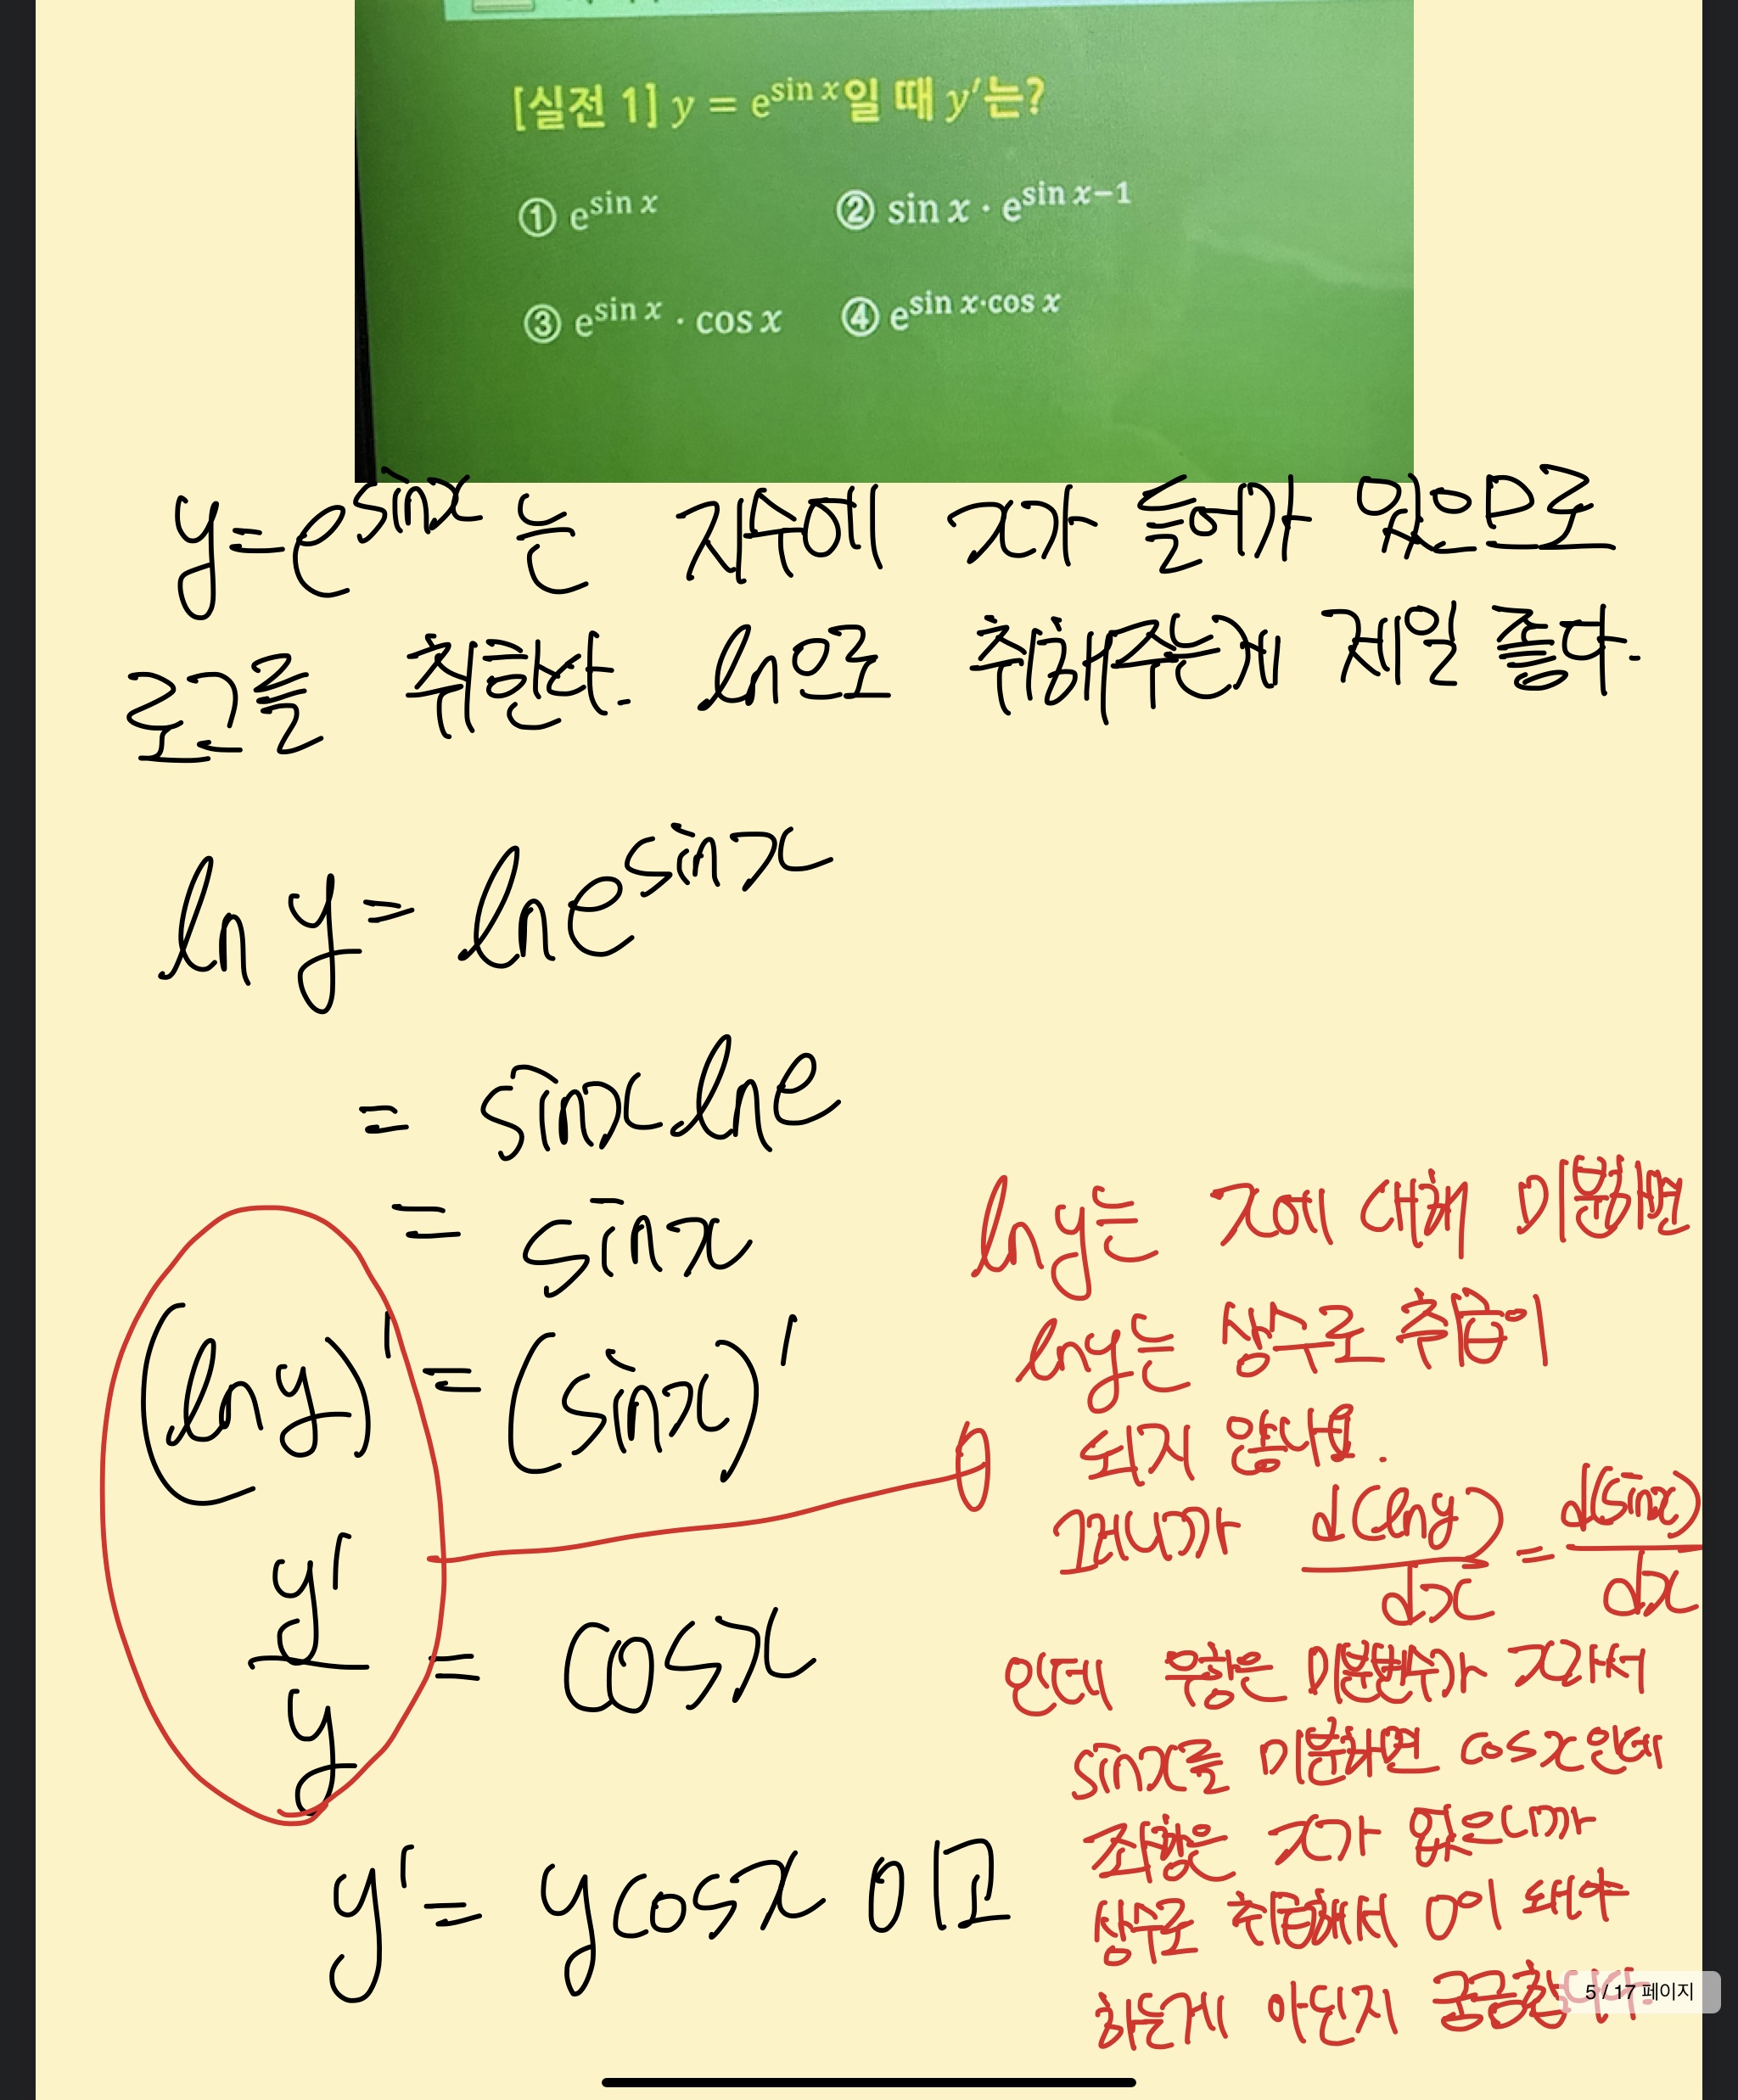 [실전 1] y = e^sin x일 때 y′는?
① e^sin x ② sin x · e^sin x−1
③ e^sin x · cos x ④ e^sin x·cos x
y=e^sinx는 지수에 x가 들어가 있으므로
로그를 취한다. ln으로 취해주는게 제일 좋다.
ln y = ln e^sinx
= sinx ln e
= sinx
(ln y)' = (sinx)'
y'/y = cosx
y' = y cosx 이고
ln y는 x에 대해 미분하면
ln y는 상수로 취급이
되지 않나요.
그러니까 d(ln y)/dx = d(sinx)/dx
인데 우항은 미분변수가 x라서
sinx를 미분하면 cosx인데
좌항은 x가 없으니까
상수로 취급해서 0이 돼야
하는게 아닌지 궁금합니다.
5 / 17 페이지